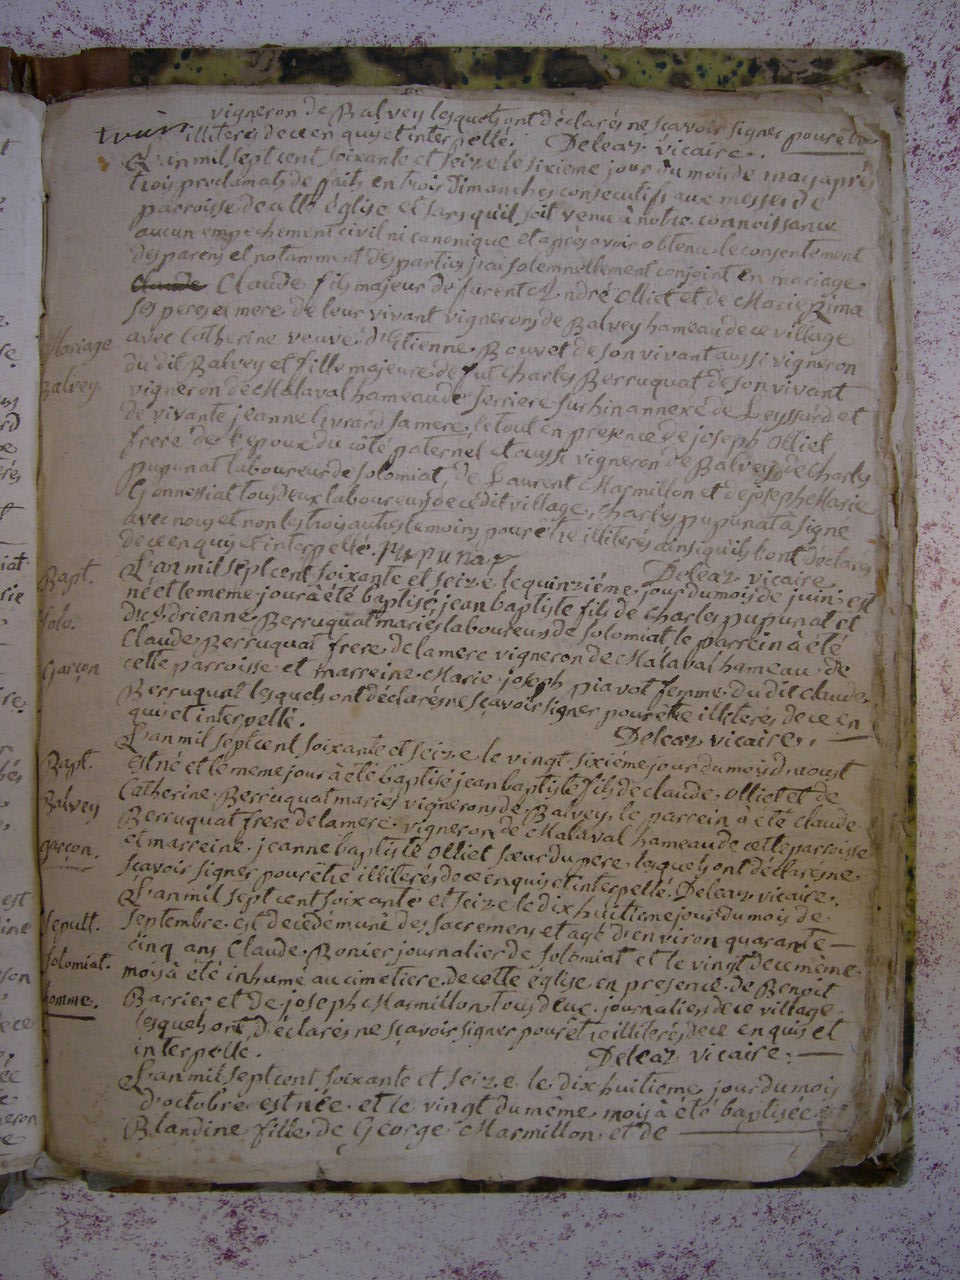 vigneron de Balvey lesquels ont déclarés ne scavoir signer pour être
illiterés de ce enquis et interpellé. Deleaz vicaire.
L'an mil sept cent soixante et seize le sixieme jour du mois de may après
trois proclamats de faits en trois dimanches consecutifs aux messes de
parroisse de cette église et sans qu'il soit venu à notre connoissance
aucun empechement civil ni canonique et après avoir obtenu le consentement
des parens et notamment des parties j'ai solemnellement conjoint en mariage
Claude Claude fils majeur de furent André Olliet et de Marie
ses pere et mere de leur vivant vignerons de Balvey hameau de ce village
Mariage avec Catherine veuve d'Etienne Bouvet de son vivant aussi vigneron
du dit Balvey et fille majeure de fut Charles Berruquat de son vivant
Balvey. vigneron de Malaval hameau de Serriere sur hin annexe de Leyssard et
de vivante jeanne Livrard sa mere, le tout en presence de joseph Olliet
frere de l'epoux du côté paternel et aussi vigneron de Balvey, de Charles
pupunat laboureur de Solomiat, de Laurent Marmillon et de joseph Marie
Gonnessiat tous deux laboureurs de ce dit village, Charles pupunat a signé
avec nous et non les trois autres temoins pour être illiterés ainsi qu'ils l'ont déclarés
de ce enquis et interpellé. pupunat
Deleaz vicaire
Bapt. L'an mil sept cent soixante et seize le quinziéme jour du mois de juin est
né et le meme jour à été baptisé jean baptiste fils de Charles pupunat et
Solo. d'Adrienne Berruquat mariés laboureurs de Solomiat le parrein à été
Claude Berruquat frere de la mere vigneron de Malaval hameau de
Garçon cette parroisse et marreine Marie joseph piavot femme du dit Claude
Berruquat lesquels ont déclarés ne sçavoir signer pour être illiterés de ce en
quis et interpellé. Deleaz vicaire.
L'an mil sept cent soixante et seize le vingt sixiéme jour du mois d'aoust
Bapt. est né et le meme jour à été baptisé jean baptiste fils de claude Olliet et de
Catherine Berruquat mariés vignerons de Balvey, le parrein à été claude
Balvey Berruquat frere de la mere vigneron de Malaval hameau de cette parroisse
garçon. et marreine jeanne baptiste Olliet sœur du pere lesquels ont déclarés ne
sçavoir signer pour être illiterés de ce enquis et interpellé. Deleaz vicaire.
L'an mil sept cent soixante et seize le dix huitieme jour du mois de
Sepult. Septembre est decedé muni de sacremens et agé d'environ quarante
cinq ans Claude Bonier journalier de Solomiat et le vingt de ce même
Solomiat. mois à été inhumé au cimetiere de cette église en presence de Benoit
homme. Barrier et de joseph Marmillon tous deux journaliers de ce village
lesquels ont déclarés ne sçavoir signer pour être illiterés de ce enquis et
interpellé. Deleaz vicaire.
L'an mil sept cent soixante et seize le dix huitieme jour du mois
d'octobre est née et le vingt du même mois à été baptisée
Blandine fille de George Marmillon et de